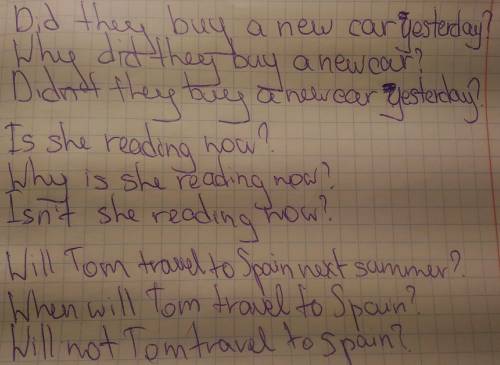 Did they buy a new car yesterday?
Why did they buy a new car?
Didn't they buy a new car yesterday?
Is she reading now?
Why is she reading now?
Isn't she reading now?
Will Tom travel to Spain next summer?
When will Tom travel to Spain?
Will not Tom travel to Spain?